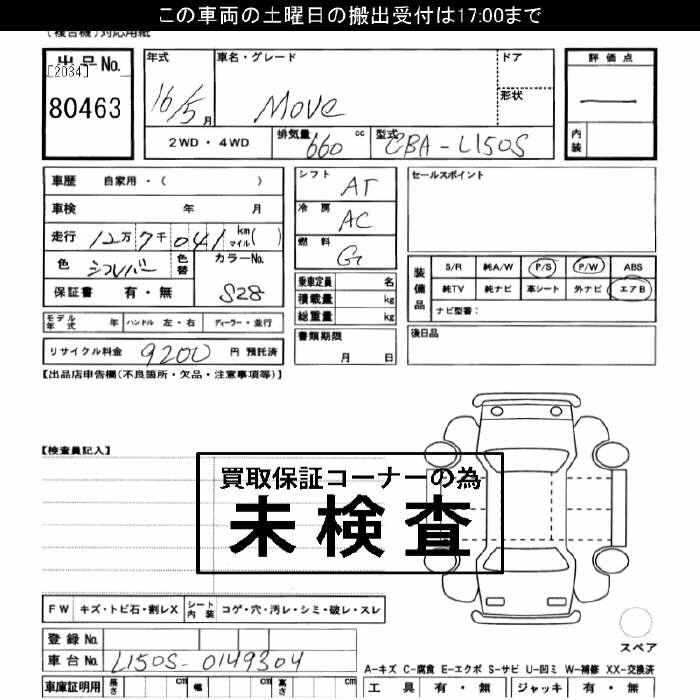 この車両の土曜日の搬出受付は17:00まで
(複合機)対応用紙
出品No.
[2034]
80463
年式
16/5月
車名・グレード
Move
ドア
形状
評価点
―
内装
2WD・4WD
排気量 660 cc
型式 CBA-L150S
車歴 自家用・( )
車検 年 月
走行 12万7千041 km マイル( )
色 シルバー 色替 カラーNo.
保証書 有・無 S28
モデル年式 年 ハンドル 左・右 ディーラー・並行
リサイクル料金 9200 円 預託済
シフト AT
冷房 AC
燃料 G
乗車定員 名
積載量 kg
総重量 kg
書類期限
月 日
セールスポイント
装備品
S/R 純A/W P/S P/W ABS
純TV 純ナビ 革シート 外ナビ エアB
ナビ型番:
後日品
【出品店申告欄(不良箇所・欠品・注意事項等)】
【検査員記入】
買取保証コーナーの為
未検査
FW キズ・トビ石・割レX シート内装 コゲ・穴・汚レ・シミ・破レ・スレ
登録No.
車台No. L150S-0149304
車庫証明用 長さ cm 幅 cm 高さ cm
スペア
A-キズ C-腐食 E-エクボ S-サビ U-凹ミ W-補修 XX-交換済
工具 有・無 ジャッキ 有・無